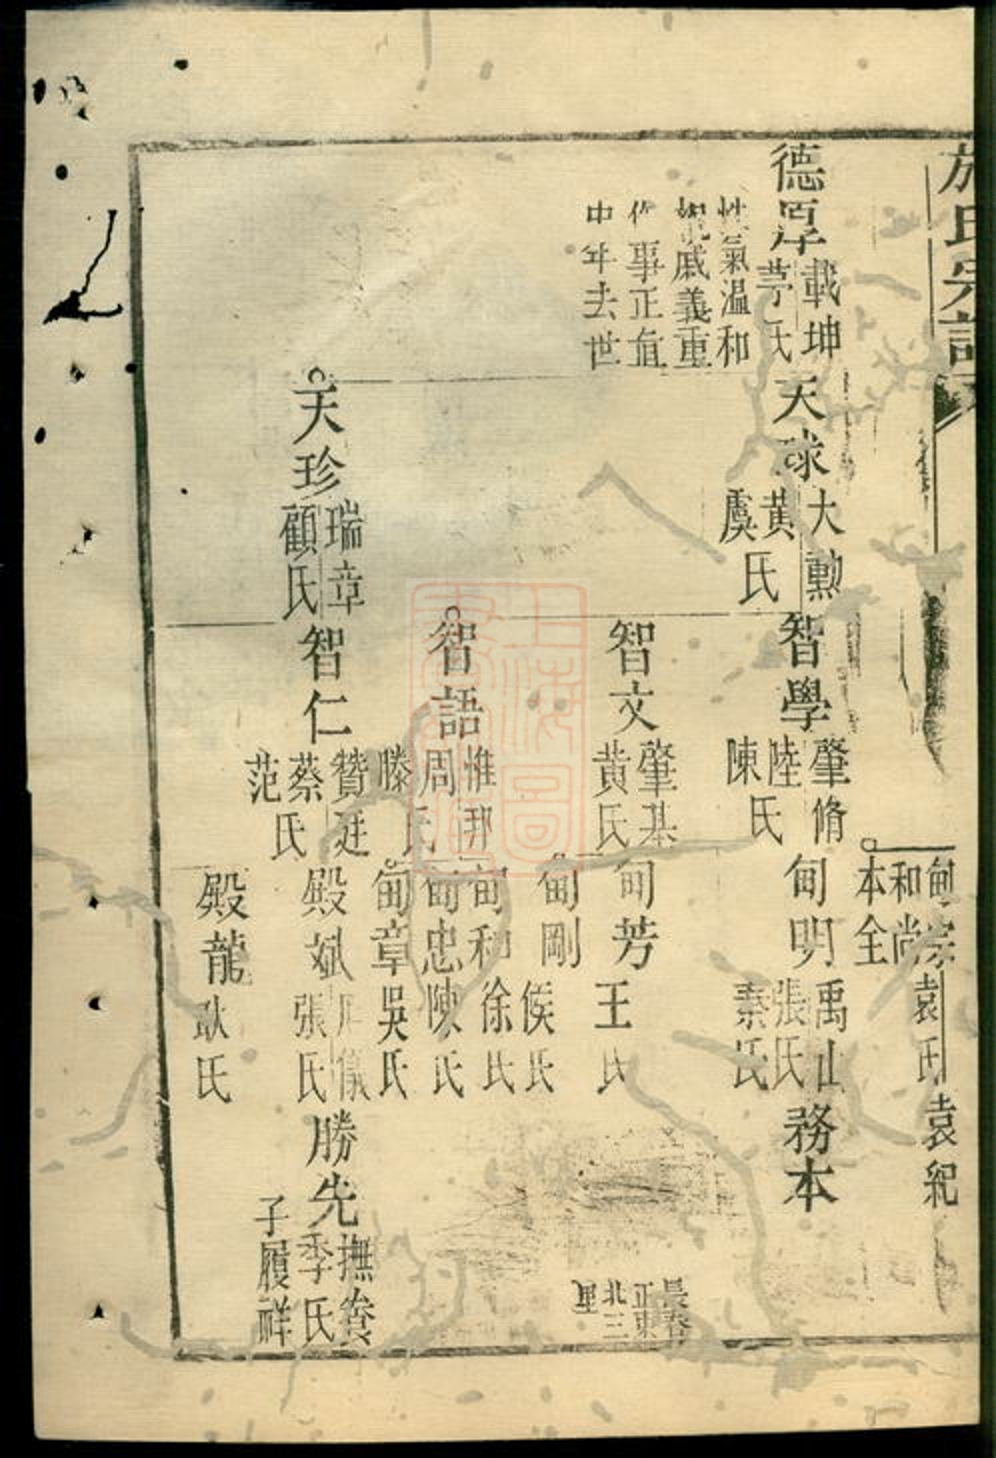 氏宗譜
甸宗
和尚
本全
袁氏
袁紀
德厚
載坤
茅氏
性氣溫和
親戚義重
作事正直
中年去世
天球
大勲
黄虞氏
智學
肇脩
陸陳氏
甸明
禹山
張氏
秦氏
務本
智文
肇基
黄氏
甸芳
王氏
甸剛
侯氏
智語
惟邦
周滕氏
甸和
徐氏
甸忠
陳氏
甸章
吳氏
天珍
瑞章
顧氏
智仁
贊廷
蔡范氏
殿斌
張氏
勝先
撫賚
季氏
子履祥
殿龍
耿氏
上海圖書館